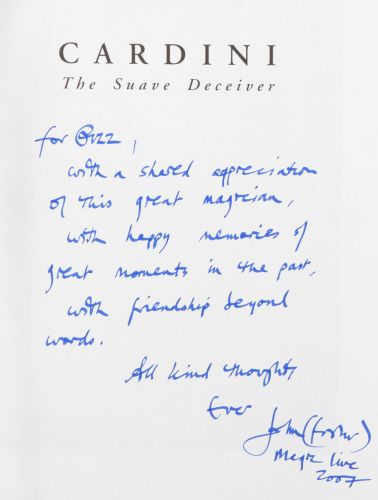 CARDINI
The Suave Deceiver
for Buzz,
with a shared appreciation
of this great magician,
with happy memories of
great moments in the past,
with friendship beyond
words.
All kind thoughts
Ever
John (Fisher)
Magic Live
2007